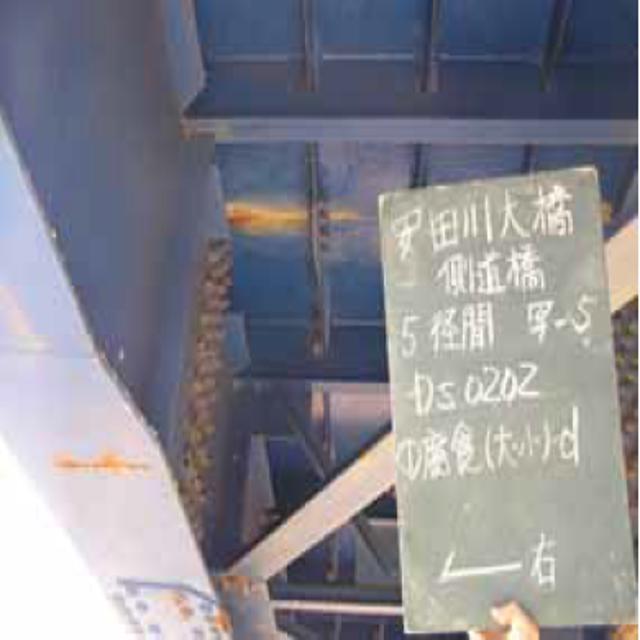 安田川大橋
側道橋
5径間 写-5
Ds0202
①腐食(大・小)-d
右